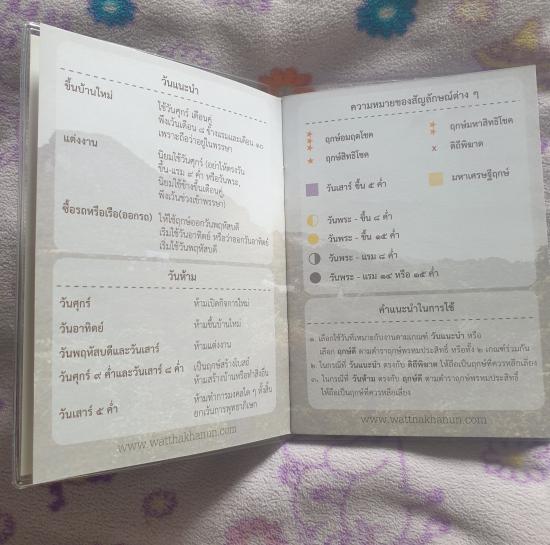 วันแนะนำ
ขึ้นบ้านใหม่
ใช้วันศุกร์ เดือนคู่
พึงเว้นเดือน ๘ ข้างแรมและเดือน ๑๐
เพราะถือว่าอยู่ในพรรษา
แต่งงาน
นิยมใช้วันศุกร์ (อย่าให้ตรงวัน
ขึ้น-แรม ๙ ค่ำ หรือวันพระ,
นิยมใช้ข้างขึ้นเดือนคู่,
พึงเว้นช่วงเข้าพรรษา)
ซื้อรถหรือเรือ(ออกรถ)
ให้ใช้ฤกษ์ออกวันพฤหัสบดี
เริ่มใช้วันอาทิตย์ หรือว่าออกวันอาทิตย์
เริ่มใช้วันพฤหัสบดี
วันห้าม
วันศุกร์ ห้ามเปิดกิจการใหม่
วันอาทิตย์ ห้ามขึ้นบ้านใหม่
วันพฤหัสบดีและวันเสาร์ ห้ามแต่งงาน
วันศุกร์ ๙ ค่ำและวันเสาร์ ๘ ค่ำ เป็นฤกษ์สร้างโบสถ์
ห้ามสร้างบ้านหรือทำสิ่งอื่น
วันเสาร์ ๕ ค่ำ ห้ามทำการมงคลใด ๆ ทั้งสิ้น
ยกเว้นการพุทธาภิเษก
www.watthakhanun.com
ความหมายของสัญลักษณ์ต่าง ๆ
ฤกษ์อมฤตโชค
ฤกษ์มหาสิทธิโชค
ฤกษ์สิทธิโชค
x ดิถีพิฆาต
วันเสาร์ ขึ้น ๕ ค่ำ
มหาเศรษฐีฤกษ์
วันพระ - ขึ้น ๘ ค่ำ
วันพระ - ขึ้น ๑๕ ค่ำ
วันพระ - แรม ๘ ค่ำ
วันพระ - แรม ๑๔ หรือ ๑๕ ค่ำ
คำแนะนำในการใช้
๑. เลือกใช้วันที่เหมาะกับงานตามเกณฑ์ วันแนะนำ หรือ
เลือก ฤกษ์ดี ตามตำราฤกษ์พรหมประสิทธิ์ หรือทั้ง ๒ เกณฑ์ร่วมกัน
๒. ในกรณีที่ วันแนะนำ ตรงกับ ดิถีพิฆาต ให้ถือเป็นฤกษ์ที่ควรหลีกเลี่ยง
๓. ในกรณีที่ วันห้าม ตรงกับ ฤกษ์ดี ตามตำราฤกษ์พรหมประสิทธิ์
ให้ถือเป็นฤกษ์ที่ควรหลีกเลี่ยง
www.watthakhanun.com